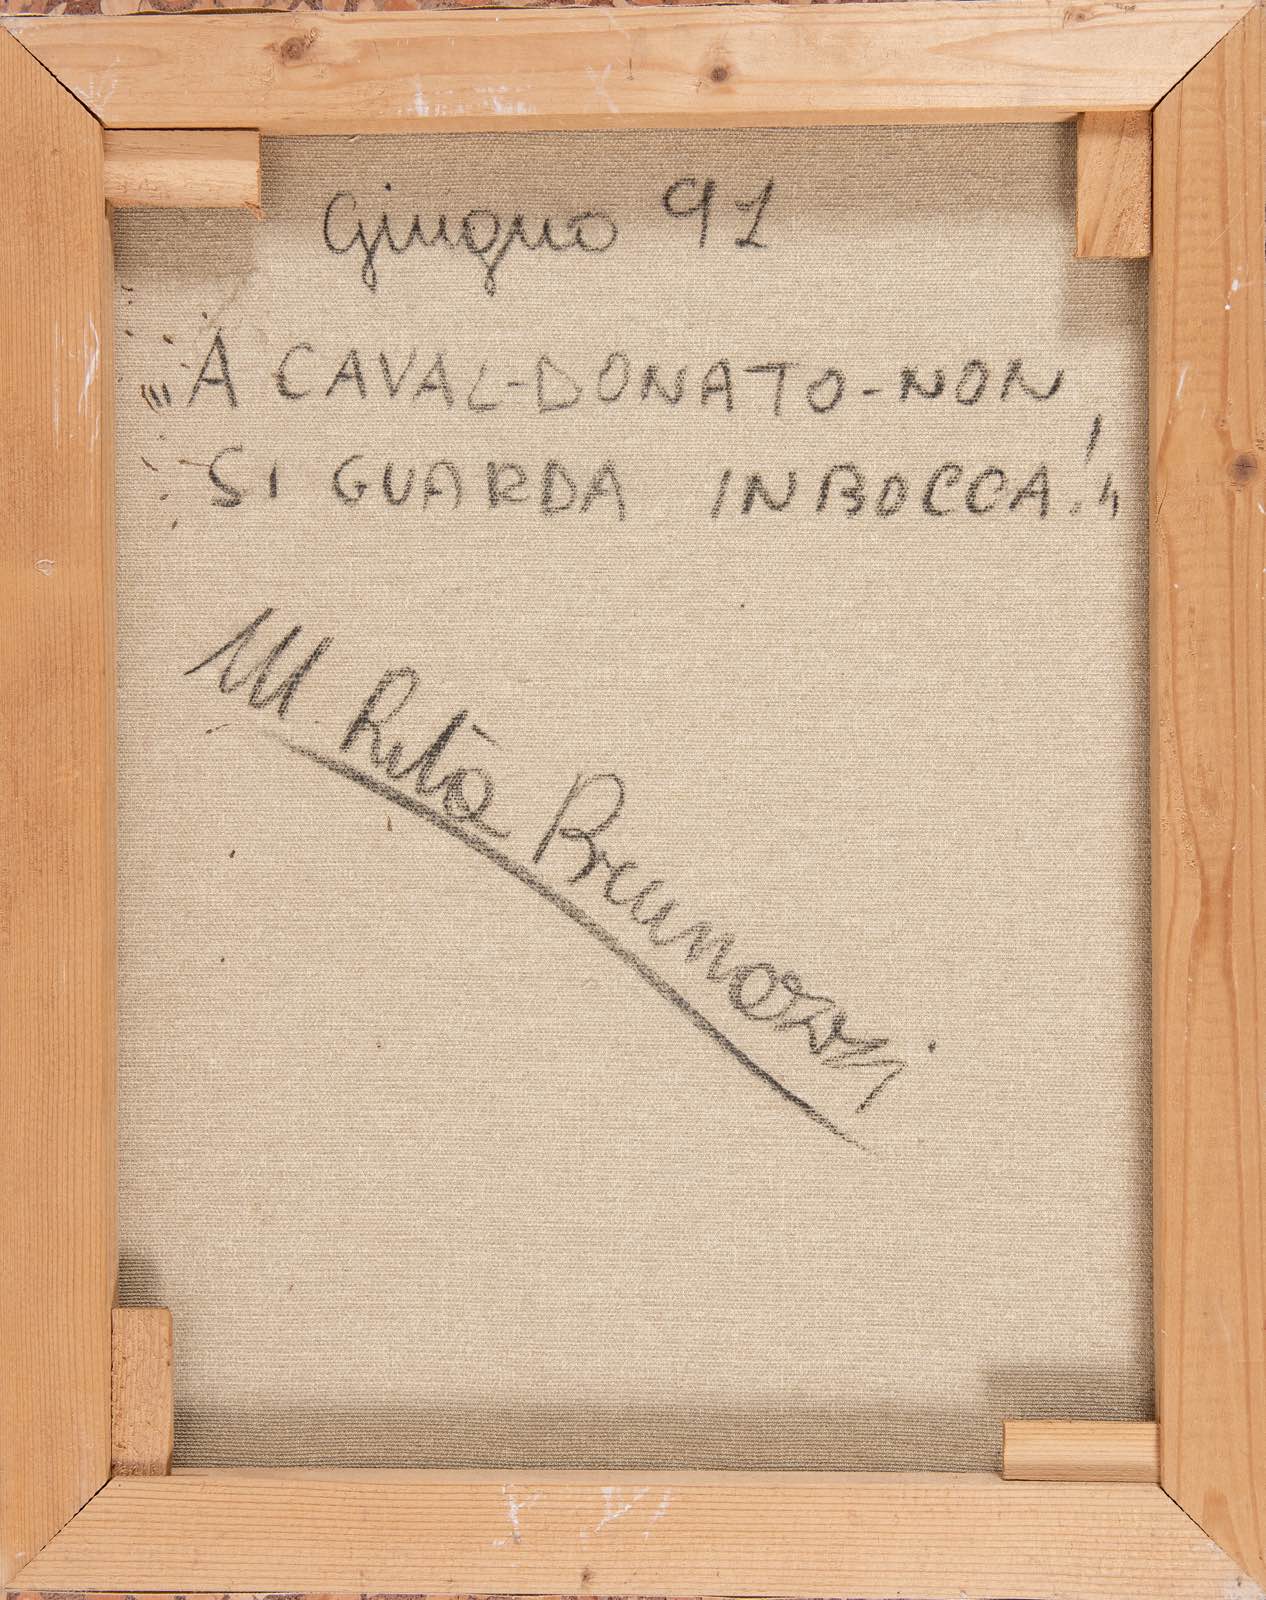 Giugno 91
"A CAVAL-DONATO-NON
SI GUARDA INBOCCA!"
M Rita Brunozzi